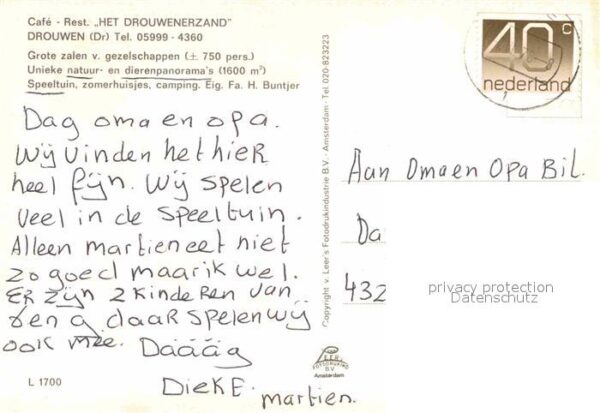 Café - Rest. „HET DROUWENERZAND"
DROUWEN (Dr) Tel. 05999 - 4360
Grote zalen v. gezelschappen (± 750 pers.)
Unieke natuur- en dierenpanorama's (1600 m²)
Speeltuin, zomerhuisjes, camping. Eig. Fa. H. Buntjer
Dag oma en opa.
Wij vinden het hier
heel fijn. Wij spelen
veel in de speeltuin.
Alleen martien eet niet
zo goed maar ik wel.
Er zijn 2 kinderen van
en 9 daar spelen wij
ook mee. Dááág
Dieke.
martien.
L 1700
Copyright v. Leer's Fotodrukindustrie B.V. - Amsterdam - Tel. 020-823223
LEER
FOTODRUKIND
B.V.
Amsterdam
40 c
nederland
Aan Oma en Opa Bil.
Da
432
privacy protection
Datenschutz